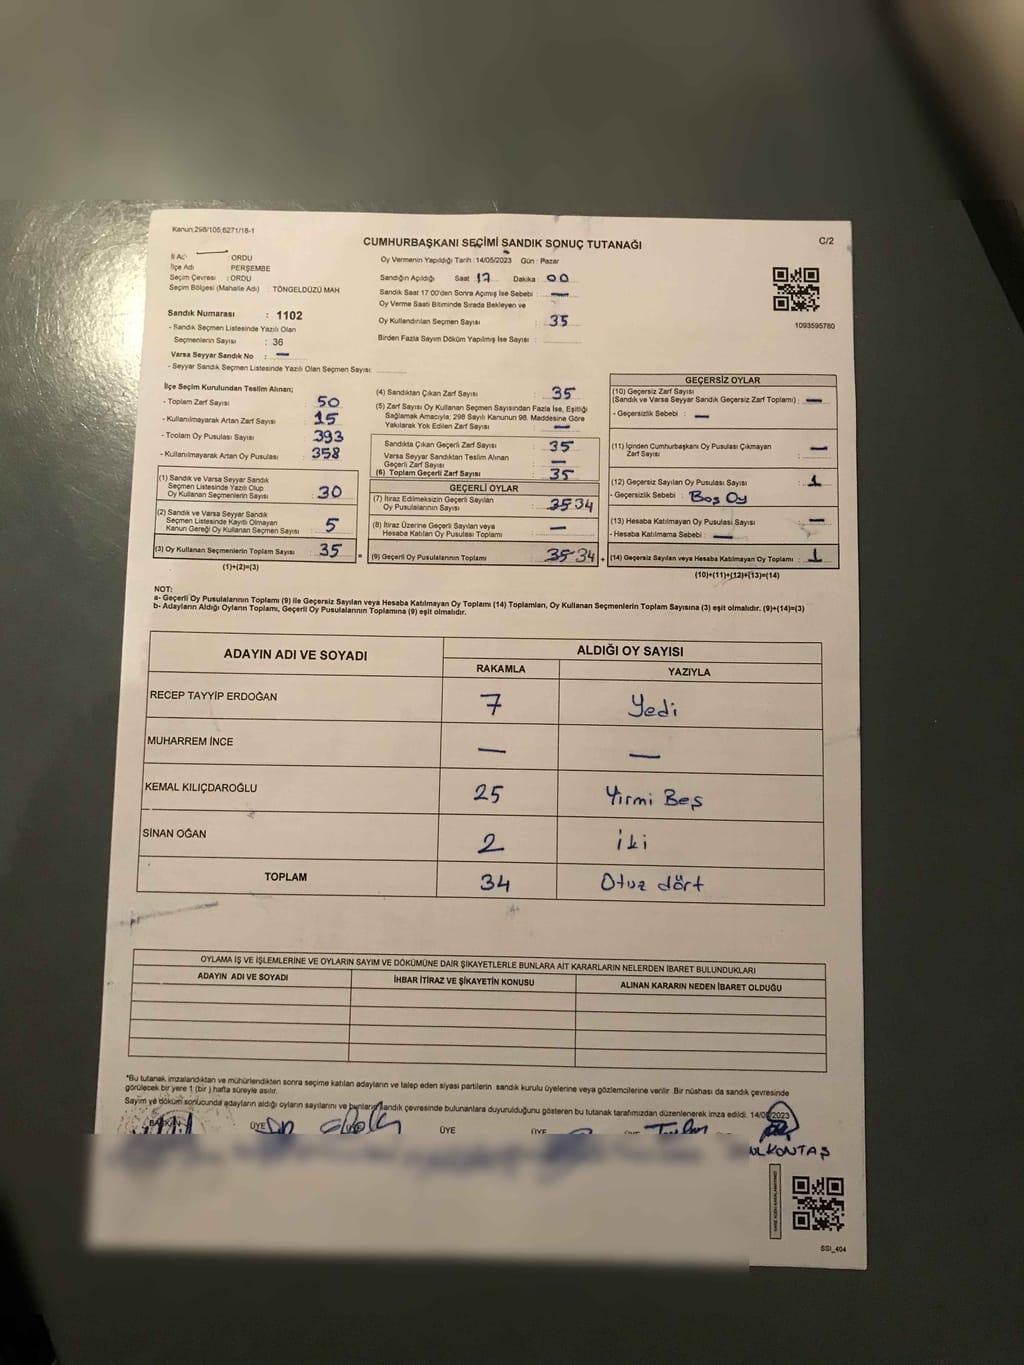 Kanun:298/105;6271/18-1
CUMHURBAŞKANI SEÇİMİ SANDIK SONUÇ TUTANAĞI
C/2
İl Adı : ORDU
İlçe Adı PERŞEMBE
Seçim Çevresi : ORDU
Seçim Bölgesi (Mahalle Adı) : TÖNGELDÜZÜ MAH
Sandık Numarası : 1102
- Sandık Seçmen Listesinde Yazılı Olan
Seçmenlerin Sayısı : 36
Varsa Seyyar Sandık No : —
- Seyyar Sandık Seçmen Listesinde Yazılı Olan Seçmen Sayısı:
Oy Vermenin Yapıldığı Tarih :14/05/2023 Gün : Pazar
Sandığın Açıldığı Saat 17 Dakika : 00
Sandık Saat 17:00'den Sonra Açmış İse Sebebi : —
Oy Verme Saati Bitiminde Sırada Bekleyen ve
Oy Kullandırılan Seçmen Sayısı : 35
Birden Fazla Sayım Döküm Yapılmış İse Sayısı :
1093595780
İlçe Seçim Kurulundan Teslim Alınan;
- Toplam Zarf Sayısı : 50
- Kullanılmayarak Artan Zarf Sayısı : 15
- Toplam Oy Pusulası Sayısı : 393
- Kullanılmayarak Artan Oy Pusulası : 358
(1) Sandık ve Varsa Seyyar Sandık
Seçmen Listesinde Yazılı Olup
Oy Kullanan Seçmenlerin Sayısı : 30
(2) Sandık ve Varsa Seyyar Sandık
Seçmen Listesinde Kayıtlı Olmayan
Kanun Gereği Oy Kullanan Seçmen Sayısı : 5
(3) Oy Kullanan Seçmenlerin Toplam Sayısı : 35
(1)+(2)=(3)
(4) Sandıktan Çıkan Zarf Sayısı : 35
(5) Zarf Sayısı Oy Kullanan Seçmen Sayısından Fazla İse, Eşitliği
Sağlamak Amacıyla; 298 Sayılı Kanunun 98. Maddesine Göre
Yakılarak Yok Edilen Zarf Sayısı : —
Sandıkta Çıkan Geçerli Zarf Sayısı : 35
Varsa Seyyar Sandıktan Teslim Alınan
Geçerli Zarf Sayısı : —
(6) Toplam Geçerli Zarf Sayısı : 35
GEÇERLİ OYLAR
(7) İtiraz Edilmeksizin Geçerli Sayılan
Oy Pusulalarının Sayısı : 35 34
(8) İtiraz Üzerine Geçerli Sayılan veya
Hesaba Katılan Oy Pusulası Toplamı : —
(9) Geçerli Oy Pusulalarının Toplamı : 35 34
GEÇERSİZ OYLAR
(10) Geçersiz Zarf Sayısı
(Sandık ve Varsa Seyyar Sandık Geçersiz Zarf Toplamı) : —
- Geçersizlik Sebebi : —
(11) İçinden Cumhurbaşkanı Oy Pusulası Çıkmayan
Zarf Sayısı : —
(12) Geçersiz Sayılan Oy Pusulası Sayısı : 1
- Geçersizlik Sebebi : Boş Oy
(13) Hesaba Katılmayan Oy Pusulası Sayısı : —
- Hesaba Katılmama Sebebi : —
(14) Geçersiz Sayılan veya Hesaba Katılmayan Oy Toplamı : 1
(10)+(11)+(12)+(13)=(14)
NOT:
a- Geçerli Oy Pusulalarının Toplamı (9) ile Geçersiz Sayılan veya Hesaba Katılmayan Oy Toplamı (14) Toplamları, Oy Kullanan Seçmenlerin Toplam Sayısına (3) eşit olmalıdır. (9)+(14)=(3)
b- Adayların Aldığı Oyların Toplamı, Geçerli Oy Pusulalarının Toplamına (9) eşit olmalıdır.
ADAYIN ADI VE SOYADI ALDIĞI OY SAYISI
RAKAMLA YAZIYLA
RECEP TAYYİP ERDOĞAN 7 Yedi
MUHARREM İNCE — —
KEMAL KILIÇDAROĞLU 25 Yirmi Beş
SİNAN OĞAN 2 iki
TOPLAM 34 Otuz dört
OYLAMA İŞ VE İŞLEMLERİNE VE OYLARIN SAYIM VE DÖKÜMÜNE DAİR ŞİKAYETLERLE BUNLARA AİT KARARLARIN NELERDEN İBARET BULUNDUKLARI
ADAYIN ADI VE SOYADI İHBAR İTİRAZ VE ŞİKAYETİN KONUSU ALINAN KARARIN NEDEN İBARET OLDUĞU
*Bu tutanak imzalandıktan ve mühürlendikten sonra seçime katılan adayların ve talep eden siyasi partilerin sandık kurulu üyelerine veya gözlemcilerine verilir. Bir nüshası da sandık çevresinde
görülecek bir yere 1 (bir) hafta süreyle asılır.
Sayım ve döküm sonucunda adayların aldığı oyların sayılarını ve bunların sandık çevresinde bulunanlara duyurulduğunu gösteren bu tutanak tarafımızdan düzenlenerek imza edildi. 14/05/2023
BAŞKAN ÜYE ÜYE ÜYE ÜYE
SSİ_404